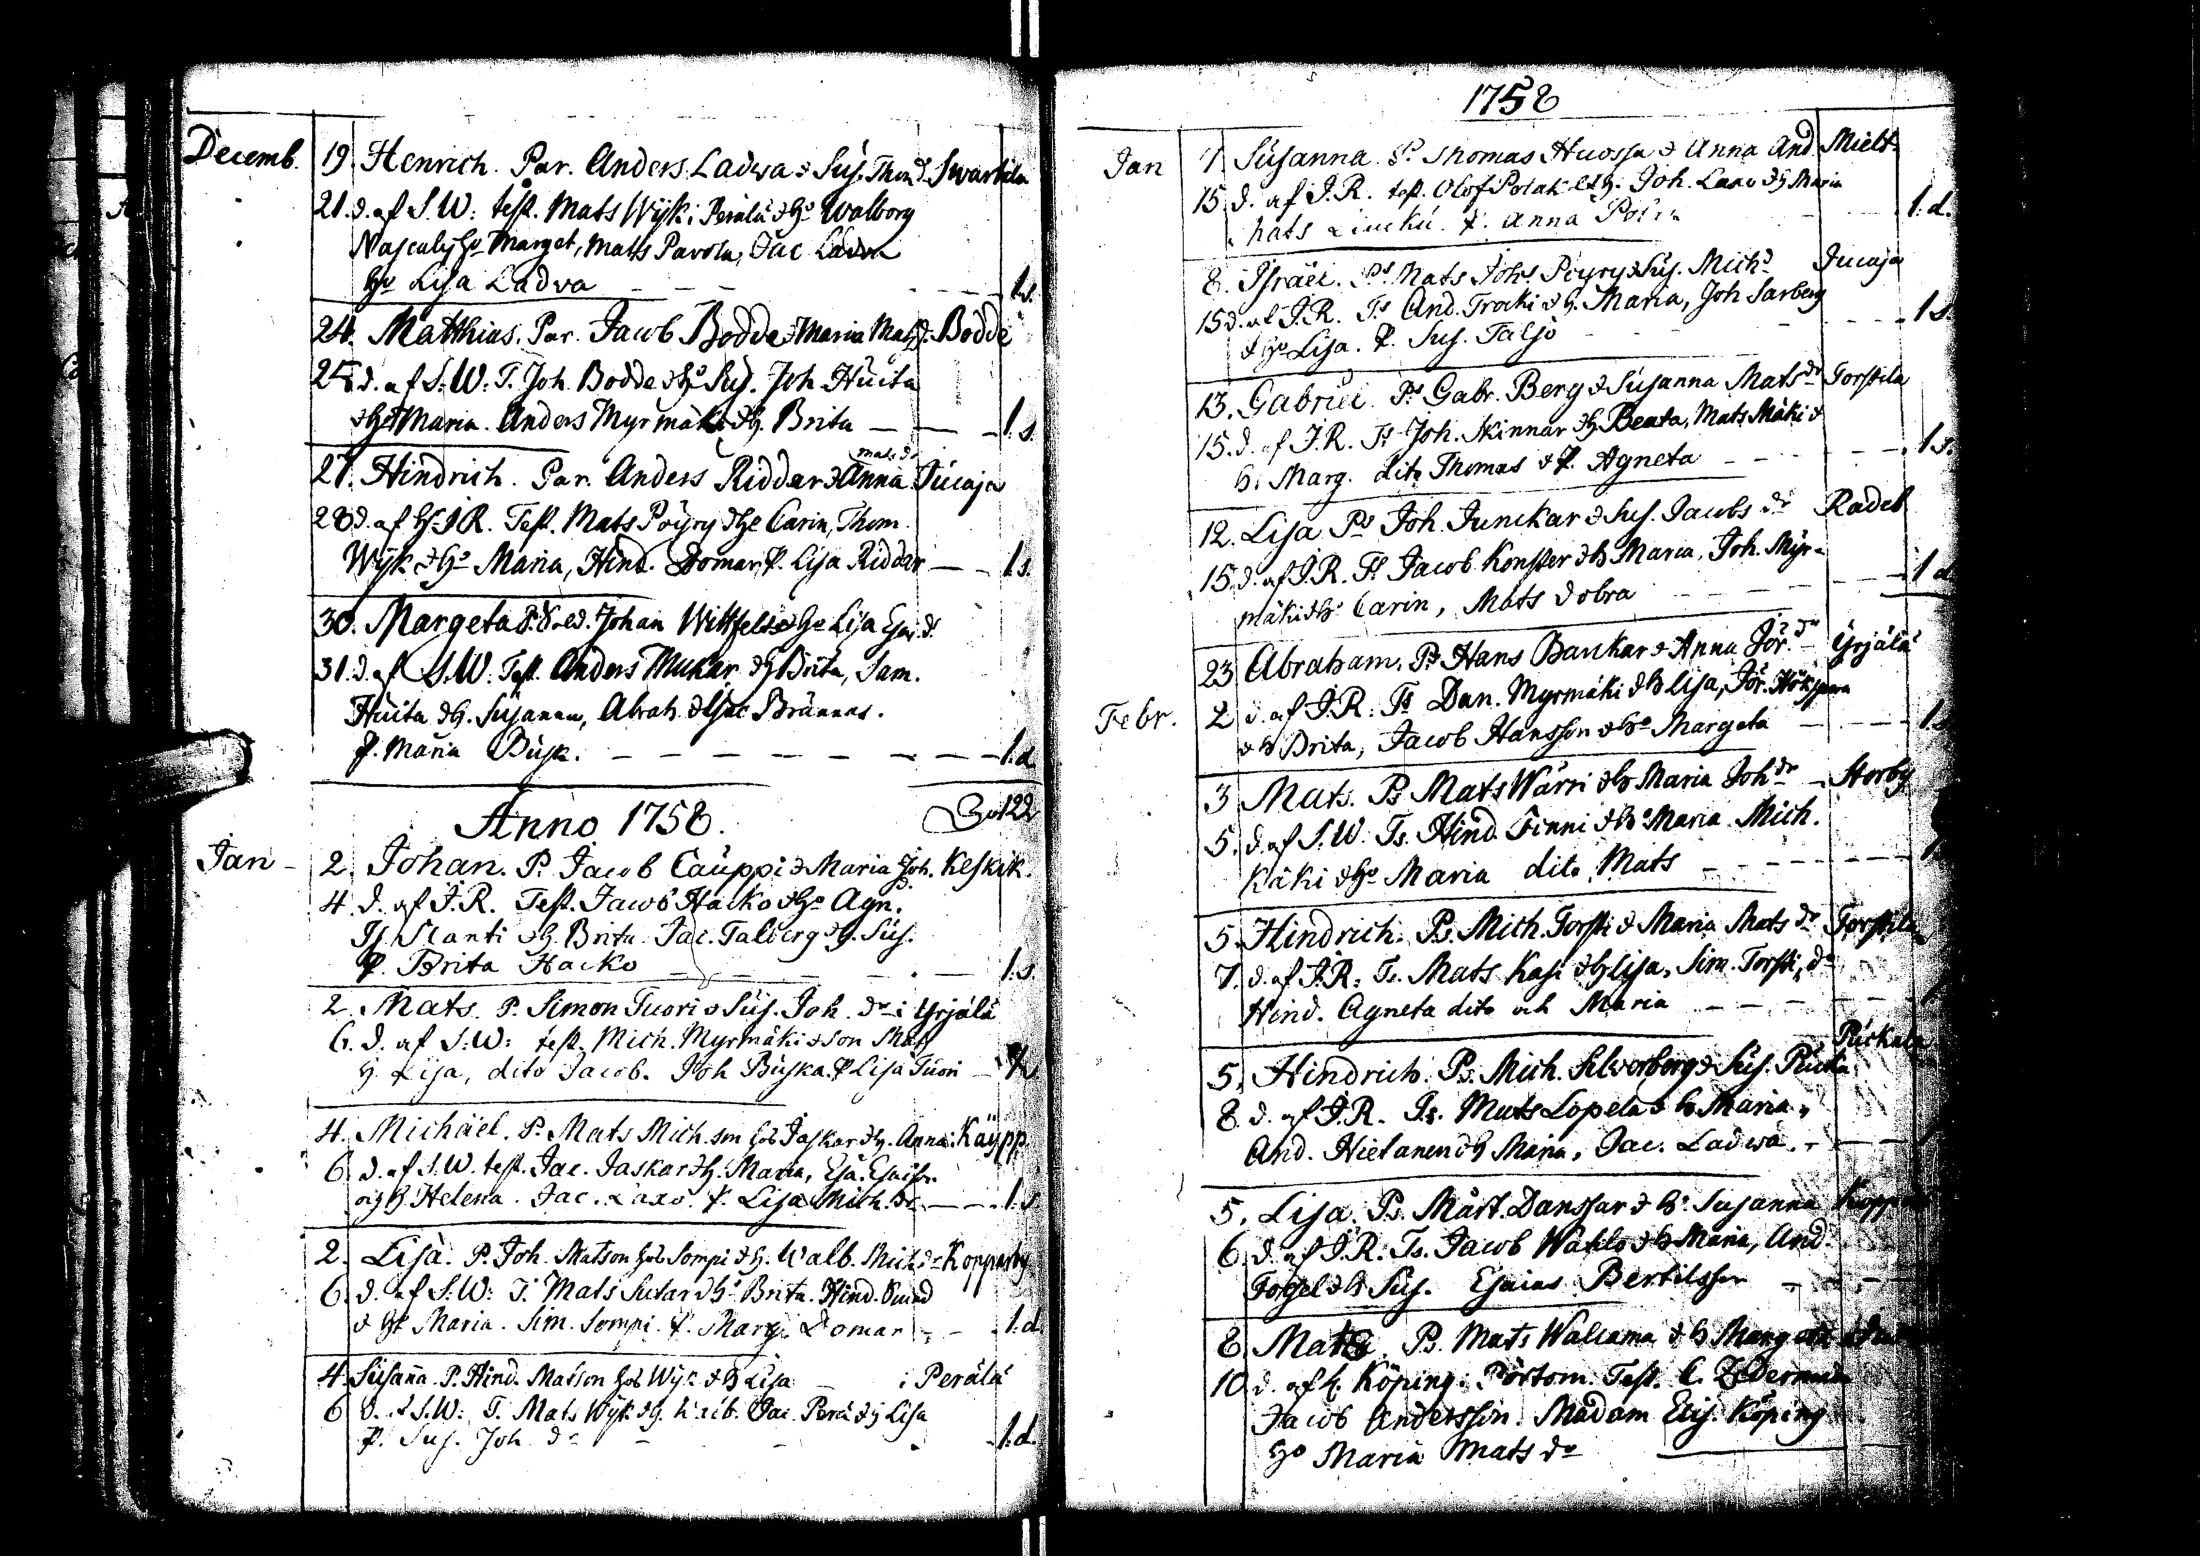 Decemb. 19. Henrich. Par. Anders Ladwa & Sus. Thom d. Swartila
21. d. af S.W: test. Mats Wijk i Perälä & Ho Walborg
Ho Marget, Matts Pavola, Jac Ladva
Ho Lisa Ladva - - - 1.s.
24. Matthias. Par. Jacob Bodde & Maria Mats d. Bodde
25 d. af S.W: T. Joh. Bodde & Ho Sus. Joh. Huita
& Ho Maria. Anders Myrmäki & H. Brita - - 1.s.
27. Hindrich. Par. Anders Riddar & Anna mats d. Jucaja
28 d. af H. J.R. Test. Mats Pöyry & Ho Carin, Thom.
Wijk & Ho Maria, Hind. Domar, P. Lisa Riddar - - 1.s.
30. Margeta Johan Wittfelt & Ho Lisa Esai d.
31. d. af S.W. Test. Anders Munkar & H Brita, Sam.
Huita & H. Susanna, Abrah. & Isac Brännas.
P. Maria Busk. - - - - - - 1.d.
Anno 1758. 122
Jan - 2. Johan. P. Jacob Cauppi & Maria Joh. d. Keskik.
4. d. af J.R. Test. Jacob Hacko & Ho Agn.
Is. Slanti & H. Brita. Jac. Talberg & H. Sus.
P. Brita Hacko - - - 1.s.
2. Mats. P. Simon Tuori & Sus. Joh. dr i Yrjälä
6. d. af S.W: test. Mich. Myrmäki & son Mats
H. Lisa, dito Jacob. Joh Buska. P Lisa Tuori -
4. Michäel. P. Mats Mich. son Jaskar & H. Anna: Käypp.
6. d. af S.W. test. Jac. Jaskar & H. Maria, Esa. Esaison
H. Helena. Jac. Laxo. P. Lisa Mich. dr - - 1.s.
2. Lisa. P. Joh. Matson Sompi & H. Walb. Mich dr Kopparby
6. d. af S.W: T. Mats Sutar & Ho Brita. Hind. Smed
& Ho Maria. Sim. Sompi. P. Marg. Domar - 1.d.
4. Susaña. P. Hind. Matson Wijk & H Lisa i Perälä
6 d. af S.W: T. Mats Wijk & H. Walb. Jac. Perä & H Lisa
P. Sus. Joh dr - - 1.d.
1758
Jan 7. Susanna. Ps Thomas Huossa & Anna And. Mielt.
15 d. af J.R. test. Olof Polak & H. Joh. Laxo & H Maria
P. Anna - - 1.d.
8. Israel. Ps Mats Johs Pöyry & Sus. Mich d. Jucaja
15 d. af J.R. Ts And. Trocki & H. Maria, Joh Sarberg
& Ho Lisa. P. Sus. Taljo - - - 1 s.
13. Gabriel. Ps Gabr. Berg & Susanna Mats dr Torstila
15. d. af J.R. Ts Joh. Skinnar & H Beata, Mats Mäki &
H. Marg. dito Thomas & P. Agneta - - - 1 s.
12. Lisa Ps Joh. Junckar & Sus. Jacobs dr Radeb
15. d. af J.R. Ts Jacob Konster & H Maria. Joh. Myr-
mäki & Ho Carin, Mats Dobra - - 1 d
23 Abraham. Ps Hans Bankar & Anna Jör. dr - Yrjälä
Febr. 2 d. af J.R: Ts Dan. Myrmäki & H Lisa, Jör.
& H Brita, Jacob Hansson & Ho Margeta - - - 1.s
3 Mats. Ps Mats Wärri & H Maria Joh dr - Storby
5. d. af S.W. Ts. Hind Finni & Ho Maria. Mich.
Käki & Ho Maria dito Mats - - -
5. Hindrich. Ps. Mich. Torsti & Maria Mats dr Torstila
7. d. af J.R: Ts. Mats Kasi & H Lisa, Sim. Torsti, do
Hind. Agneta dito och Maria - - -
Puckala
5. Hindrich. Ps. Mich. Silverberg & Sus.
8. d. af J.R. Ts. Mats Lopela & H Maria,
And. Hietanen & H Maria, Jac. Ladwa. - -
5. Lisa. Ps. Mårt. Danssar & Ho Susanna
6. d. af J.R: Ts. Jacob Wahlo & H Maria, And.
& H Sus. Esaias Bertilsson - -
8. Mats. Ps. Mats Walcama & H Margeta
10. d. af C. Köping i Pörtom. Test. C.
Jacob Andersson. Madam Elis. Köping
Ho Maria Mats dr